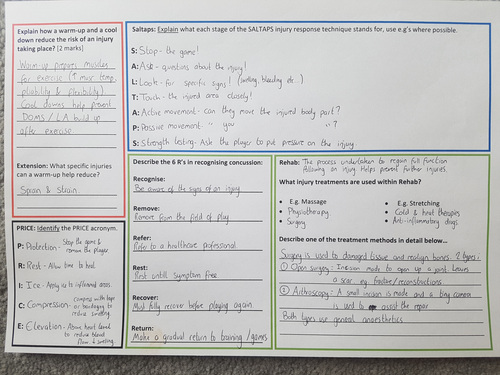 Explain how a warm-up and a cool
down reduce the risk of an injury
taking place? [2 marks]
Warm-up prepares muscles
for exercise (↑ mus temp,
pliability & flexibility)
Cool downs help prevent
DOMS / LA build up
after exercise
Extension: What specific injuries
can a warm-up help reduce?
Sprain & strain.
PRICE: Identify the PRICE acronym.
P: Protection - Stop the game &
remove the player
R: Rest - Allow time to heal
I: Ice - Apply ice to inflamed areas
C: Compression - Compress with tape
or bandaging to
reduce swelling
E: Elevation - Above heart level
to reduce blood
flow & swelling
Saltaps: Explain what each stage of the SALTAPS injury response technique stands for, use e.g's where possible.
S: Stop - the game!
A: Ask - questions about the injury!
L: Look - for specific signs! (swelling, bleeding etc..)
T: Touch - the injured area closely!
A: Active movement - can they move the injured body part?
P: Passive movement " you " ?
S: Strength testing - Ask the player to put pressure on the injury
Describe the 6 R's in recognising concussion:
Recognise:
Be aware of the signs of an injury
Remove:
Remove from the field of play
Refer:
Refer to a healthcare professional
Rest:
Rest until symptom free
Recover:
Must fully recover before playing again
Return:
Make a gradual return to training / games
Rehab: The process undertaken to regain full function
following an injury. Helps prevent further injuries.
What injury treatments are used within Rehab?
• E.g. Massage
• Physiotherapy
• Surgery
• E.g. Stretching
• Cold & heat therapies
• Anti-inflammatory drugs
Describe one of the treatment methods in detail below...
Surgery is used to damaged tissue and realign bones. 2 types:
① Open surgery: Incision made to open up a joint. Leaves
a scar eg. fracture/reconstructions.
② Arthoscopy: A small incision is made and a tiny camera
is used to assist the repair
Both types use general anaesthetics